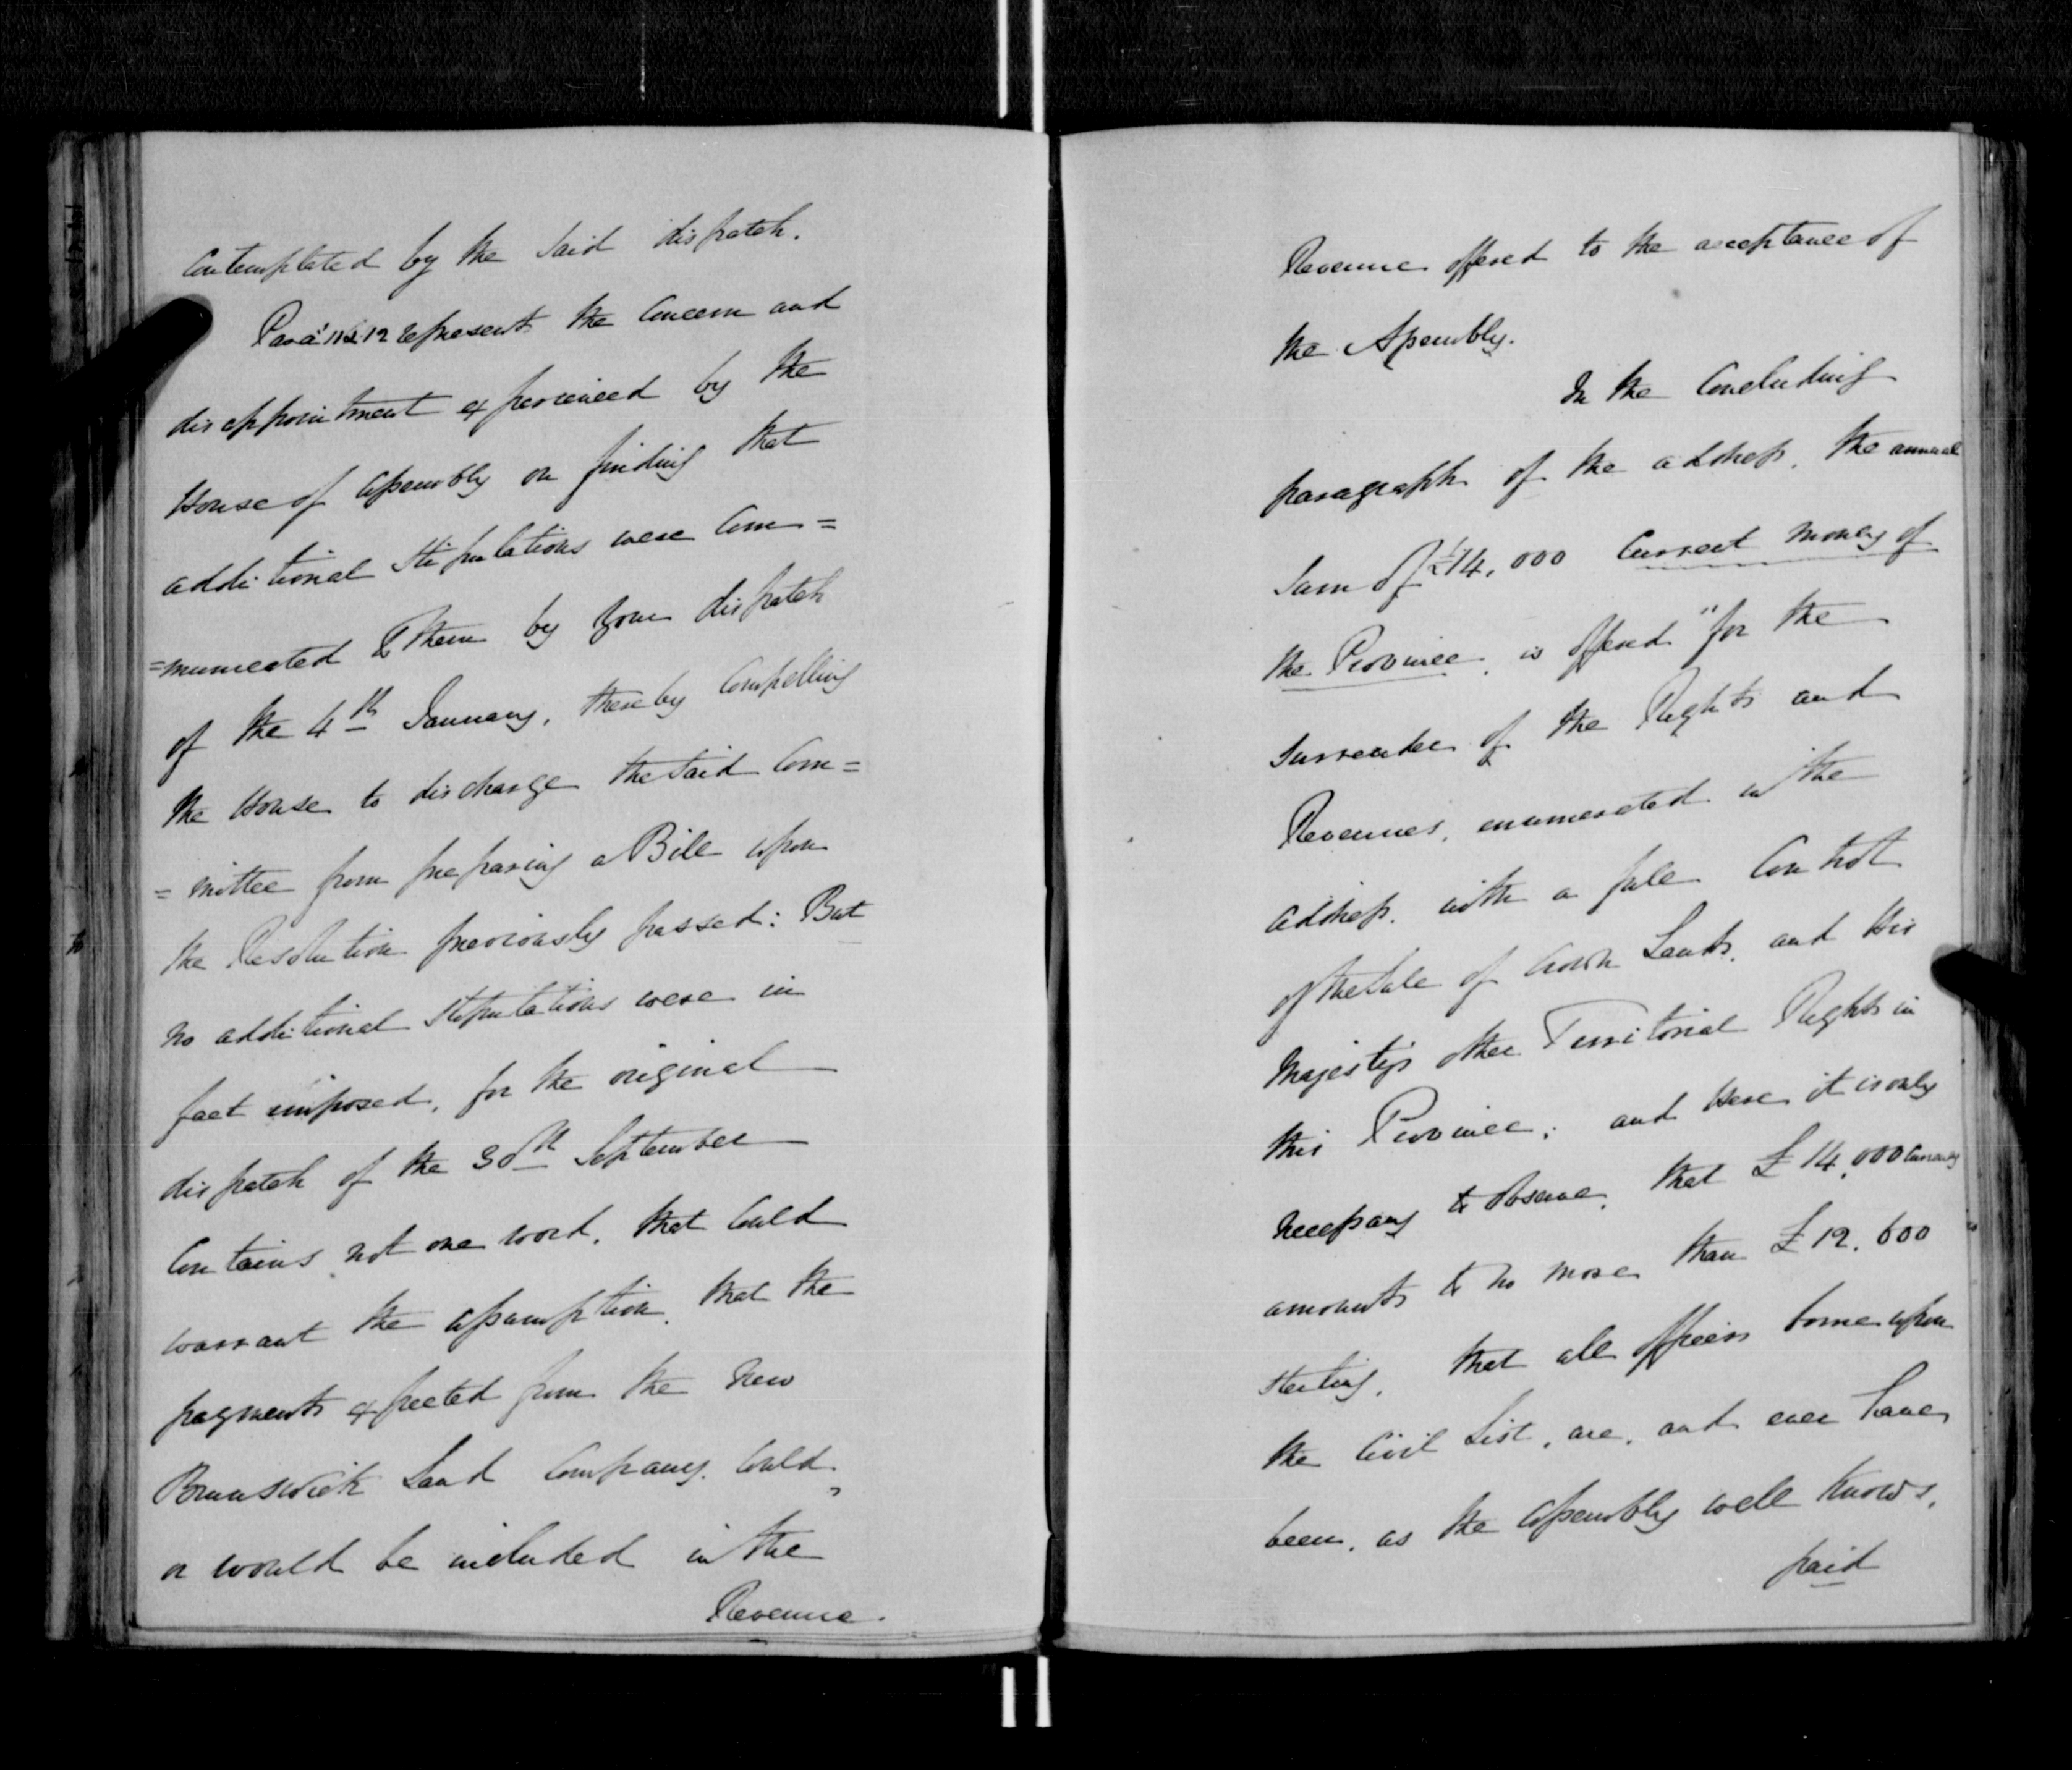 Contemplated by the said dispatch.
Para: 11 & 12 represents the Concern and
disappointment experienced by the
House of Assembly on finding that
additional Stipulations were Com=
=municated to them by your dispatch
of the 4th January, thereby Compelling
the House to discharge the said Com=
=mittee from preparing a Bill upon
the Resolution previously passed: But
no additional Stipulations were in
fact imposed, for the original
dispatch of the 30th September
Contains not one word, that Could
warrant the assumption, that the
payments expected from the New
Brunswick Land Company, Could,
or would be included in the
Revenue.
Revenue offered to the acceptance of
the Assembly.
In the Concluding
paragraph of the address, the annual
Sum of £14,000 Current Money of
the Province, is offered "for the
Surrender of the Rights and
Revenues, enumerated in the
address, with a full Control
of the Sale of Crown Lands, and His
Majesty's other Territorial Rights in
this Province; and Here it is only
necessary to observe, that £14,000 Currency
amounts to no more than £12,600
Sterling, that all officers borne upon
the Civil List, are, and ever have
been, as the Assembly well Knows,
paid